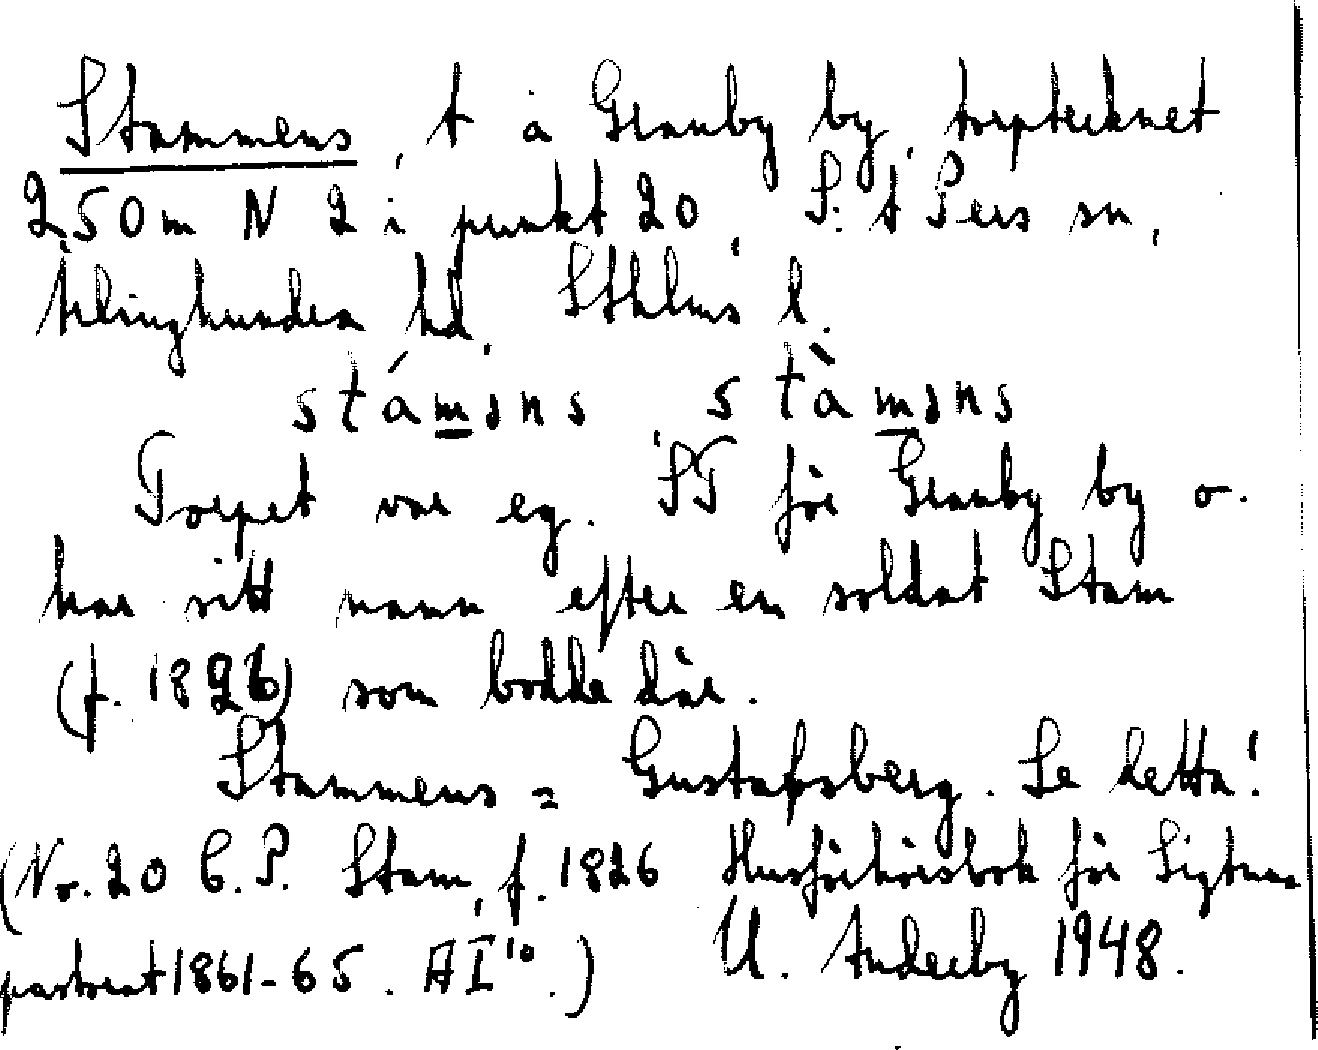 Stammens, t å Granby by, torptecknet
250 m N 2 i punkt 20, S:t Pers sn,
Ärlinghundra hd, Sthlms l.
stáməns, stàməns
Torpet var eg. ST för Granby by o.
har sitt namn efter en soldat Stam
(f. 1826) som bodde där.
Stammens = Gustafsberg. Se detta!
(Nr. 20 C.P. Stam, f. 1826 Husförhörsbok för Sigtuna
pastorat 1861-65. A I 10.) U. Anderby 1948.